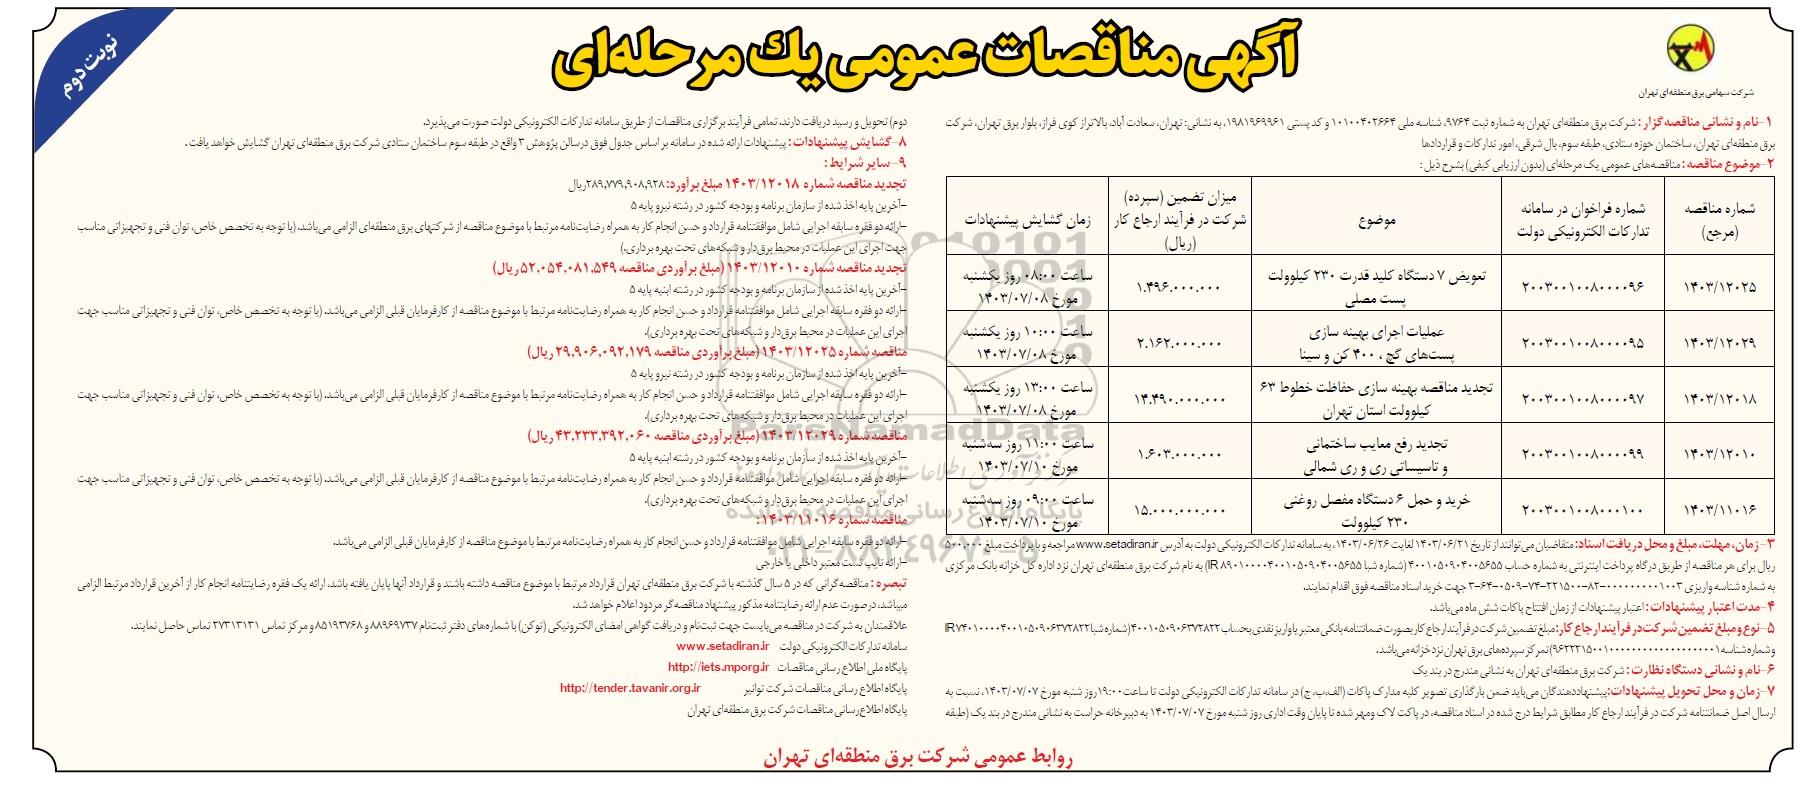 آگهی مناقصات عمومی یك مرحله‌ای
نوبت دوم
شرکت سهامی برق منطقه‌ای تهران
۱-نام و نشانی مناقصه گزار : شرکت برق منطقه‌ای تهران به شماره ثبت ۹۷۶۴، شناسه ملی ۱۰۱۰۰۴۰۲۶۶۴ و کد پستی ۱۹۸۱۹۶۹۹۶۱، به نشانی: تهران، سعادت آباد، بالاتراز کوی فراز، بلوار برق تهران، شرکت
برق منطقه‌ای تهران، ساختمان حوزه ستادی، طبقه سوم، بال شرقی، امور تدارکات و قراردادها
۲-موضوع مناقصه : مناقصه‌های عمومی یک مرحله‌ای (بدون ارزیابی کیفی) بشرح ذیل :
شماره مناقصه (مرجع) | شماره فراخوان در سامانه تدارکات الکترونیکی دولت | موضوع | میزان تضمین (سپرده) شرکت در فرآیند ارجاع کار (ریال) | زمان گشایش پیشنهادات
۱۴۰۳/۱۲۰۲۵ | ۲۰۰۳۰۰۱۰۰۸۰۰۰۰۹۶ | تعویض ۷ دستگاه کلید قدرت ۲۳۰ کیلوولت پست مصلی | ۱.۴۹۶.۰۰۰.۰۰۰ | ساعت ۰۸:۰۰ روز یکشنبه مورخ ۱۴۰۳/۰۷/۰۸
۱۴۰۳/۱۲۰۲۹ | ۲۰۰۳۰۰۱۰۰۸۰۰۰۰۹۵ | عملیات اجرای بهینه سازی پست‌های گچ ، ۴۰۰ کن و سینا | ۲.۱۶۲.۰۰۰.۰۰۰ | ساعت ۱۰:۰۰ روز یکشنبه مورخ ۱۴۰۳/۰۷/۰۸
۱۴۰۳/۱۲۰۱۸ | ۲۰۰۳۰۰۱۰۰۸۰۰۰۰۹۷ | تجدید مناقصه بهینه سازی حفاظت خطوط ۶۳ کیلوولت استان تهران | ۱۴.۴۹۰.۰۰۰.۰۰۰ | ساعت ۱۳:۰۰ روز یکشنبه مورخ ۱۴۰۳/۰۷/۰۸
۱۴۰۳/۱۲۰۱۰ | ۲۰۰۳۰۰۱۰۰۸۰۰۰۰۹۹ | تجدید رفع معایب ساختمانی و تاسیساتی ری و ری شمالی | ۱.۶۰۳.۰۰۰.۰۰۰ | ساعت ۱۱:۰۰ روز سه‌شنبه مورخ ۱۴۰۳/۰۷/۱۰
۱۴۰۳/۱۱۰۱۶ | ۲۰۰۳۰۰۱۰۰۸۰۰۰۱۰۰ | خرید و حمل ۶ دستگاه مفصل روغنی ۲۳۰ کیلوولت | ۱۵.۰۰۰.۰۰۰.۰۰۰ | ساعت ۰۹:۰۰ روز سه‌شنبه مورخ ۱۴۰۳/۰۷/۱۰
۳-زمان، مهلت، مبلغ و محل دریافت اسناد: متقاضیان می‌توانند از تاریخ ۱۴۰۳/۰۶/۲۱ لغایت ۱۴۰۳/۰۶/۲۶، به سامانه تدارکات الکترونیکی دولت به آدرس www.setadiran.ir مراجعه و با پرداخت مبلغ ۵۰۰,۰۰۰
ریال برای هر مناقصه از طریق درگاه پرداخت اینترنتی به شماره حساب ۴۰۰۱۰۵۰۹۰۴۰۰۵۶۵۵ (شماره شبا IR ۸۹۰۱۰۰۰۰۴۰۰۱۰۵۰۹۰۴۰۰۵۶۵۵) به نام شرکت برق منطقه‌ای تهران نزد اداره کل خزانه بانک مرکزی
به شماره شناسه واریزی جهت خرید اسناد مناقصه فوق اقدام نمایند.
۴-مدت اعتبار پیشنهادات : اعتبار پیشنهادات از زمان افتتاح پاکات شش ماه می‌باشد.
۵-نوع و مبلغ تضمین شرکت در فرآیند ارجاع کار: مبلغ تضمین شرکت در فرآیند ارجاع کار بصورت ضمانتنامه بانکی معتبر یا واریز نقدی بحساب ۴۰۰۱۰۵۰۹۰۶۳۷۲۸۲۲ (شماره شبا IR۷۴۰۱۰۰۰۰۴۰۰۱۰۵۰۹۰۶۳۷۲۸۲۲
و شماره شناسه تمرکز سپرده‌های برق تهران نزد خزانه می‌باشد.
۶-نام و نشانی دستگاه نظارت : شرکت برق منطقه‌ای تهران به نشانی مندرج در بند یک
۷-زمان و محل تحویل پیشنهادات: پیشنهاددهندگان می‌باید ضمن بارگذاری تصویر کلیه مدارک پاکات (الف،ب، ج) در سامانه تدارکات الکترونیکی دولت تا ساعت ۱۹:۰۰ روز شنبه مورخ ۱۴۰۳/۰۷/۰۷، نسبت به
ارسال اصل ضمانتنامه شرکت در فرآیند ارجاع کار مطابق شرایط درج شده در اسناد مناقصه، در پاکت لاک ومهر شده تا پایان وقت اداری روز شنبه مورخ ۱۴۰۳/۰۷/۰۷ به دبیرخانه حراست به نشانی مندرج در بند یک (طبقه
دوم) تحویل و رسید دریافت دارند. تمامی فرآیند برگزاری مناقصات از طریق سامانه تدارکات الکترونیکی دولت صورت می‌پذیرد.
۸-گشایش پیشنهادات : پیشنهادات ارائه شده در سامانه بر اساس جدول فوق درسالن پژوهش ۳ واقع در طبقه سوم ساختمان ستادی شرکت برق منطقه‌ای تهران گشایش خواهد یافت .
۹-سایر شرایط :
تجدید مناقصه شماره ۱۴۰۳/۱۲۰۱۸ مبلغ برآورد: ۲۸۹,۷۷۹,۹۰۸,۹۲۸ریال
-آخرین پایه اخذ شده از سازمان برنامه و بودجه کشور در رشته نیرو پایه ۵
-ارائه دو فقره سابقه اجرایی شامل موافقتنامه قرارداد و حسن انجام کار به همراه رضایت‌نامه مرتبط با موضوع مناقصه از شرکتهای برق منطقه‌ای الزامی می‌باشد. (با توجه به تخصص خاص، توان فنی و تجهیزاتی مناسب
جهت اجرای این عملیات در محیط برق‌دار و شبکه‌های تحت بهره برداری.)
تجدید مناقصه شماره ۱۴۰۳/۱۲۰۱۰ (مبلغ برآوردی مناقصه ۵۲.۰۵۴.۰۸۱,۵۴۹ ریال)
-آخرین پایه اخذ شده از سازمان برنامه و بودجه کشور در رشته ابنیه پایه ۵
-ارائه دو فقره سابقه اجرایی شامل موافقتنامه قرارداد و حسن انجام کار به همراه رضایت‌نامه مرتبط با موضوع مناقصه از کارفرمایان قبلی الزامی می‌باشد. (با توجه به تخصص خاص، توان فنی و تجهیزاتی مناسب جهت
اجرای این عملیات در محیط برق‌دار و شبکه‌های تحت بهره برداری).
مناقصه شماره ۱۴۰۳/۱۲۰۲۵ (مبلغ برآوردی مناقصه ۲۹,۹۰۶,۰۹۲,۱۷۹ ریال)
-آخرین پایه اخذ شده از سازمان برنامه و بودجه کشور در رشته نیرو پایه ۵
-ارائه دو فقره سابقه اجرایی شامل موافقتنامه قرارداد و حسن انجام کار به همراه رضایت‌نامه مرتبط با موضوع مناقصه از کارفرمایان قبلی الزامی می‌باشد. (با توجه به تخصص خاص، توان فنی و تجهیزاتی مناسب جهت
اجرای این عملیات در محیط برق‌دار و شبکه‌های تحت بهره برداری).
مناقصه شماره ۱۴۰۳/۱۲۰۲۹ (مبلغ برآوردی مناقصه ۴۳,۲۳۳,۳۹۲,۰۶۰ ریال)
-آخرین پایه اخذ شده از سازمان برنامه و بودجه کشور در رشته ابنیه پایه ۵
-ارائه دو فقره سابقه اجرایی شامل موافقتنامه قرارداد و حسن انجام کار به همراه رضایت‌نامه مرتبط با موضوع مناقصه از کارفرمایان قبلی الزامی می‌باشد. (با توجه به تخصص خاص، توان فنی و تجهیزاتی مناسب جهت
اجرای این عملیات در محیط برق‌دار و شبکه‌های تحت بهره برداری).
مناقصه شماره ۱۴۰۳/۱۱۰۱۶:
-ارائه دو فقره سابقه اجرایی شامل موافقتنامه قرارداد و حسن انجام کار به همراه رضایت‌نامه مرتبط با موضوع مناقصه از کارفرمایان قبلی الزامی می‌باشد.
-ارائه تایپ تست معتبر داخلی یا خارجی
تبصره : مناقصه‌گرانی که در ۵ سال گذشته با شرکت برق منطقه‌ای تهران قرارداد مرتبط با موضوع مناقصه داشته باشند و قرارداد آنها پایان یافته باشد، ارائه یک فقره رضایتنامه انجام کار از آخرین قرارداد مرتبط الزامی
میباشد، درصورت عدم ارائه رضایتنامه مذکور پیشنهاد مناقصه گر مردود اعلام خواهد شد.
علاقمندان به شرکت در مناقصه می‌بایست جهت ثبت‌نام و دریافت گواهی امضای الکترونیکی (توکن) با شماره‌های دفتر ثبت‌نام ۸۸۹۶۹۷۳۷ و ۸۵۱۹۳۷۶۸ و مرکز تماس ۲۷۳۱۳۱۳۱ تماس حاصل نمایند.
سامانه تدارکات الکترونیکی دولت www.setadiran.ir
پایگاه ملی اطلاع رسانی مناقصات http://iets.mporg.ir
پایگاه اطلاع رسانی مناقصات شرکت توانیر http://tender.tavanir.org.ir
پایگاه اطلاع‌رسانی مناقصات شرکت برق منطقه‌ای تهران
روابط عمومی شرکت برق منطقه‌ای تهران
ParsNamadData
پایگاه اطلاع رسانی مناقصه و مزایده
۰۲۱-۸۸۳۴۹۶۷۰-۵